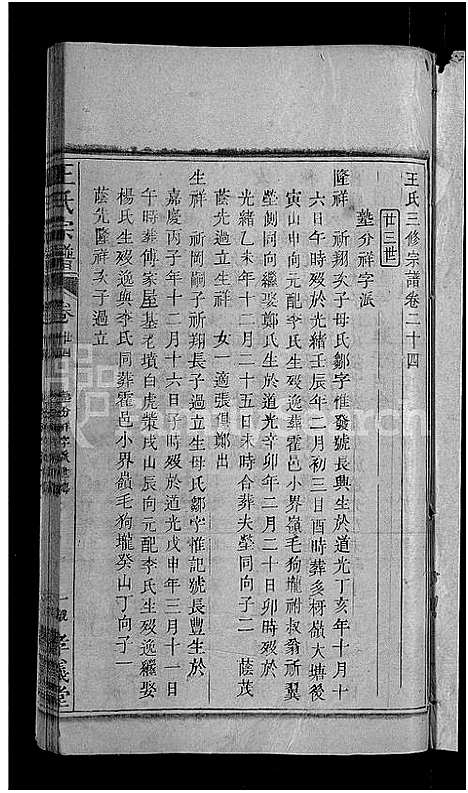 王氏三修宗譜卷二十四
廿三世
塾分祥字派
隆祥　祈翔次子母氏鄒字惟發號長興生於道光丁亥年十月十
六日午時歿於光緒壬辰年二月初三日酉時葬多枒嶺大塘後
寅山申向元配李氏生歿逸葬霍邑小界嶺毛狗壠祔叔翁祈翼
塋側同向繼娶鄭氏生於道光辛卯年二月二十日卯時歿於
光緒乙未年十二月二十五日未時合葬夫塋同向子二　蔭茂
蔭先過立生祥　女一適張俱鄭出
生祥　祈岡嗣子祈翔長子過立生母氏鄒字惟記號長豐生於
嘉慶丙子年十二月十六日子時歿於道光戊申年三月十一日
午時葬傅家屋基老墳白虎漿戌山辰向元配李氏生歿逸繼娶
楊氏生歿逸與李氏同葬霍邑小界嶺毛狗壠癸山丁向子一
蔭先隆祥次子過立
王氏宗譜
卷廿四
孝義堂